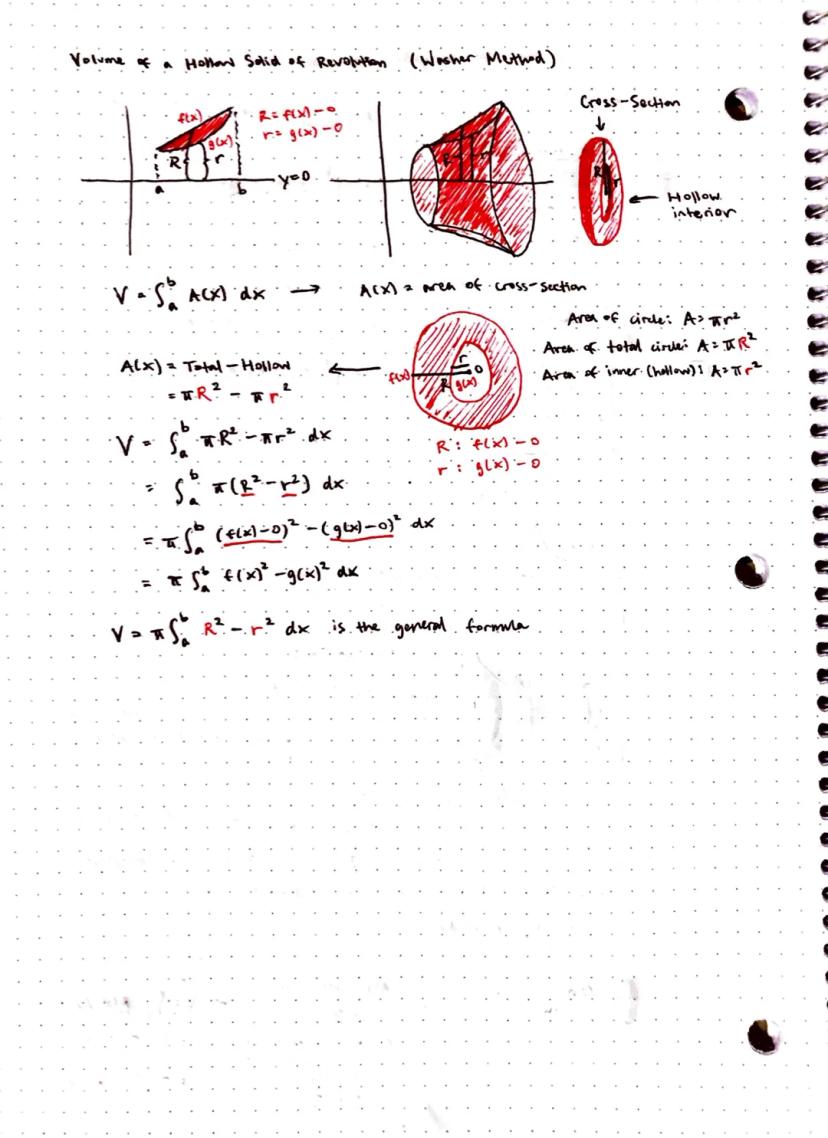 Volume of a Hollow Solid of Revolution (Washer Method)
f(x)
R = f(x) - 0
r = g(x) - 0
g(x)
R
r
a
b
y=0
R
r
Cross-Section
R
r
Hollow
interior
V = ∫ₐᵇ A(x) dx → A(x) = area of cross-section
Area of circle: A = πr²
Area of total circle: A = πR²
Area of inner (hollow): A = πr²
A(x) = Total - Hollow
= πR² - πr²
f(x)
r
0
R
g(x)
R: f(x) - 0
r: g(x) - 0
V = ∫ₐᵇ πR² - πr² dx
= ∫ₐᵇ π(R² - r²) dx
= π∫ₐᵇ (f(x)-0)² - (g(x)-0)² dx
= π∫ₐᵇ f(x)² - g(x)² dx
V = π∫ₐᵇ R² - r² dx is the general formula